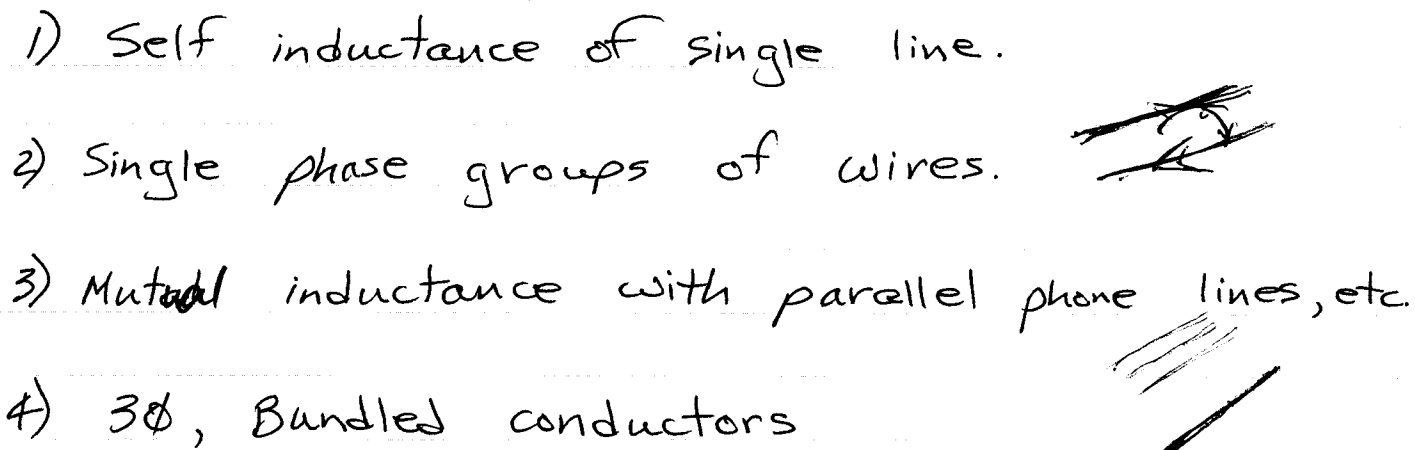 1) Self inductance of single line.
2) Single phase groups of wires.
3) Mutual inductance with parallel phone lines, etc.
4) 3ø, Bundled conductors